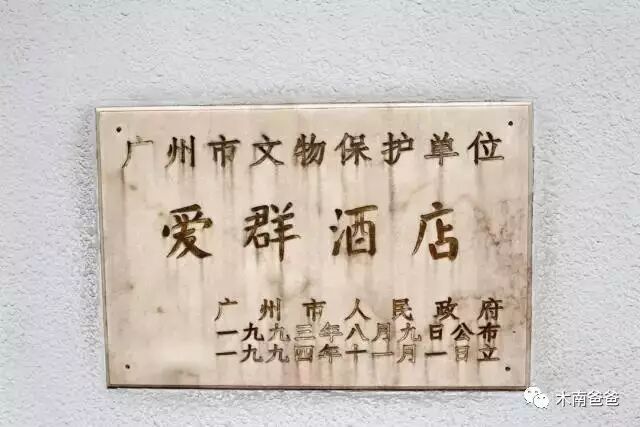 广州市文物保护单位
爱群酒店
广州市人民政府
一九九三年八月九日公布
一九九四年十一月一日立
木南爸爸